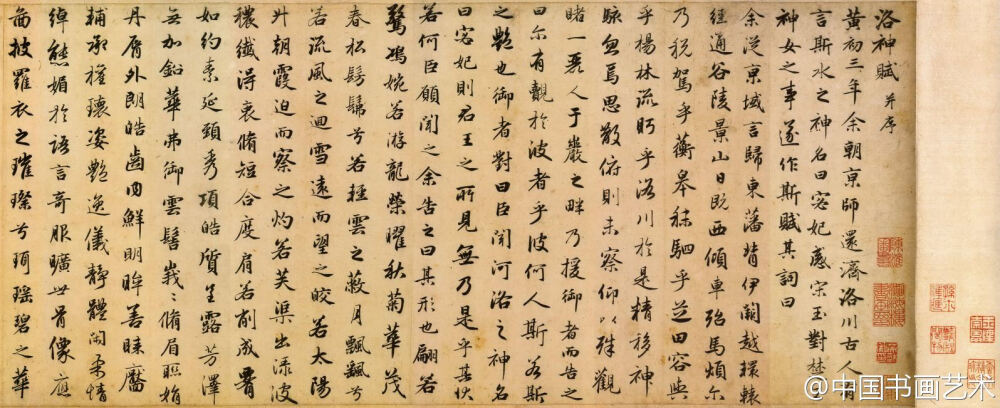 洛神賦 并序
黃初三年余朝京師還濟洛川古人有
言斯水之神名曰宓妃感宋玉對楚王
神女之事遂作斯賦其詞曰
余從京域言歸東藩背伊闕越轘轅
經通谷陵景山日既西傾車殆馬煩尔
乃稅駕乎蘅皋秣駟乎芝田容與
乎楊林流眄乎洛川於是精移神
駭忽焉思散俯則未察仰以殊觀
睹一麗人于巖之畔乃援御者而告之
曰尓有覿於彼者乎彼何人斯若斯
之艷也御者對曰臣聞河洛之神名
曰宓妃則君王之所見無乃是乎其狀
若何臣願聞之余告之曰其形也翩若
驚鴻婉若游龍榮曜秋菊華茂
春松髣髴兮若輕雲之蔽月飄颻兮
若流風之迴雪遠而望之皎若太陽
升朝霞迫而察之灼若芙渠出淥波
穠纖得衷脩短合度肩若削成腰
如約素延頸秀項皓質呈露芳澤
無加鉛華弗御雲髻峩〻脩眉聯娟
丹脣外朗皓齒內鮮明眸善睞靨
輔承權瓌姿艷逸儀靜體閑柔情
綽態媚於語言奇服曠世骨像應
圖披羅衣之璀璨兮珥瑤碧之華
@中国书画艺术